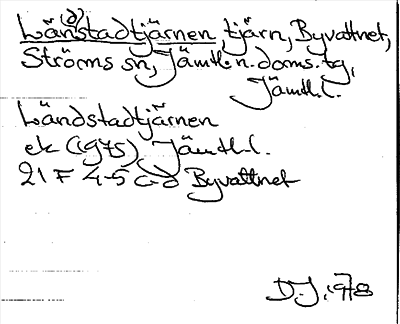 Län(d)stadtjärnen, tjärn, Byvattnet,
Ströms sn, Jämtl. n. doms. tg,
Jämtl.l.
Ländstadtjärnen
ek (1975) Jämtl.l.
21 F 4-5 c-d Byvattnet
D.J. 1978